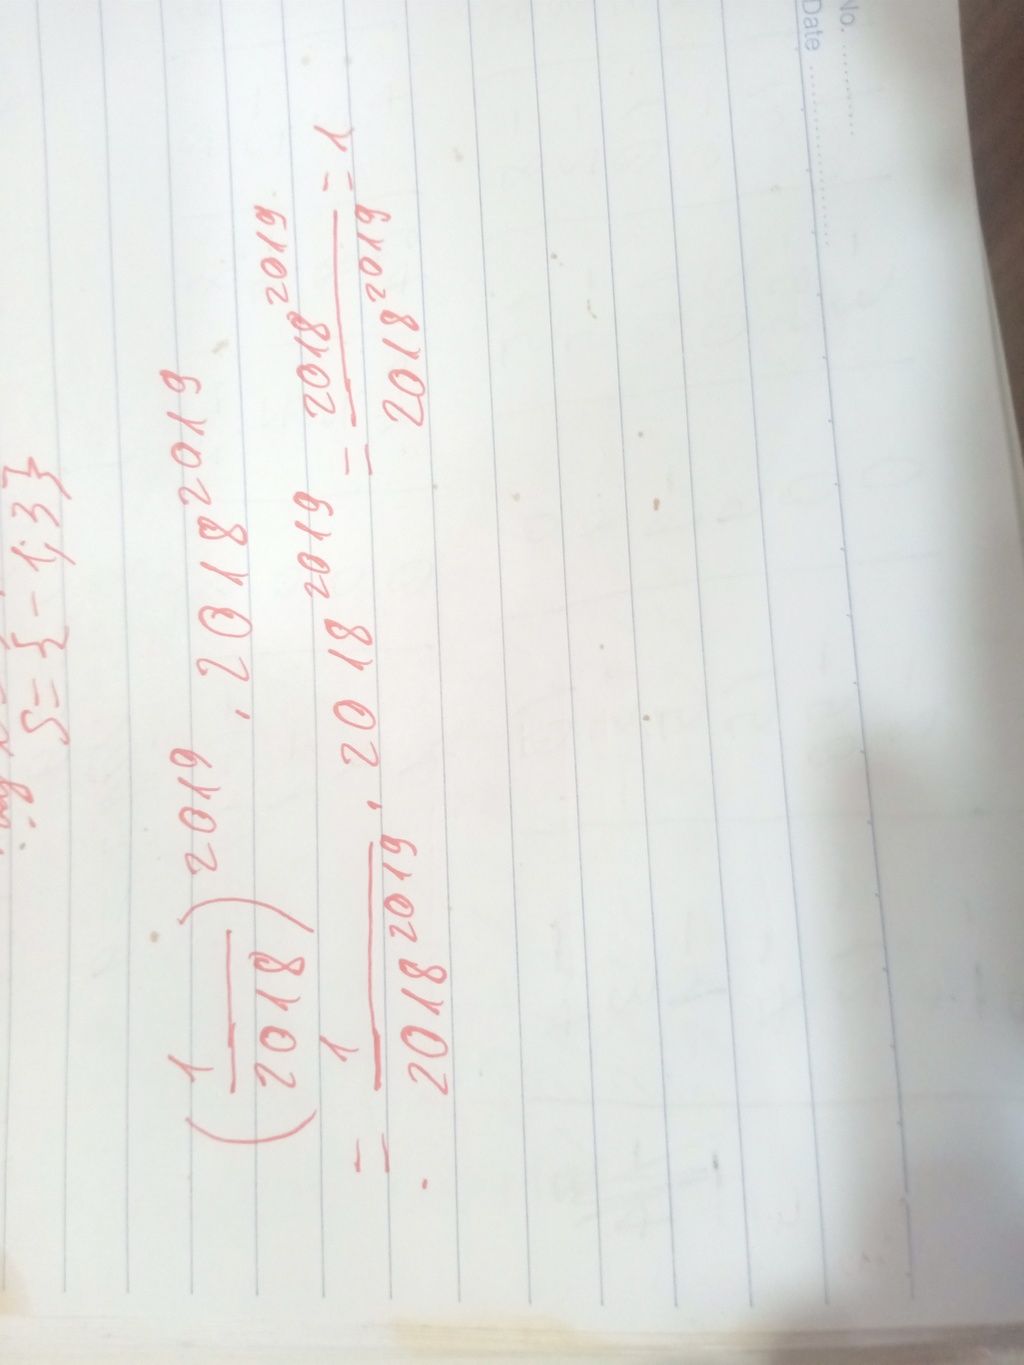 S = { - 1; 3 }
(1/2018)^2019 . 2018^2019
= 1/2018^2019 . 2018^2019 = 2018^2019/2018^2019 = 1
No. ............
Date ........................